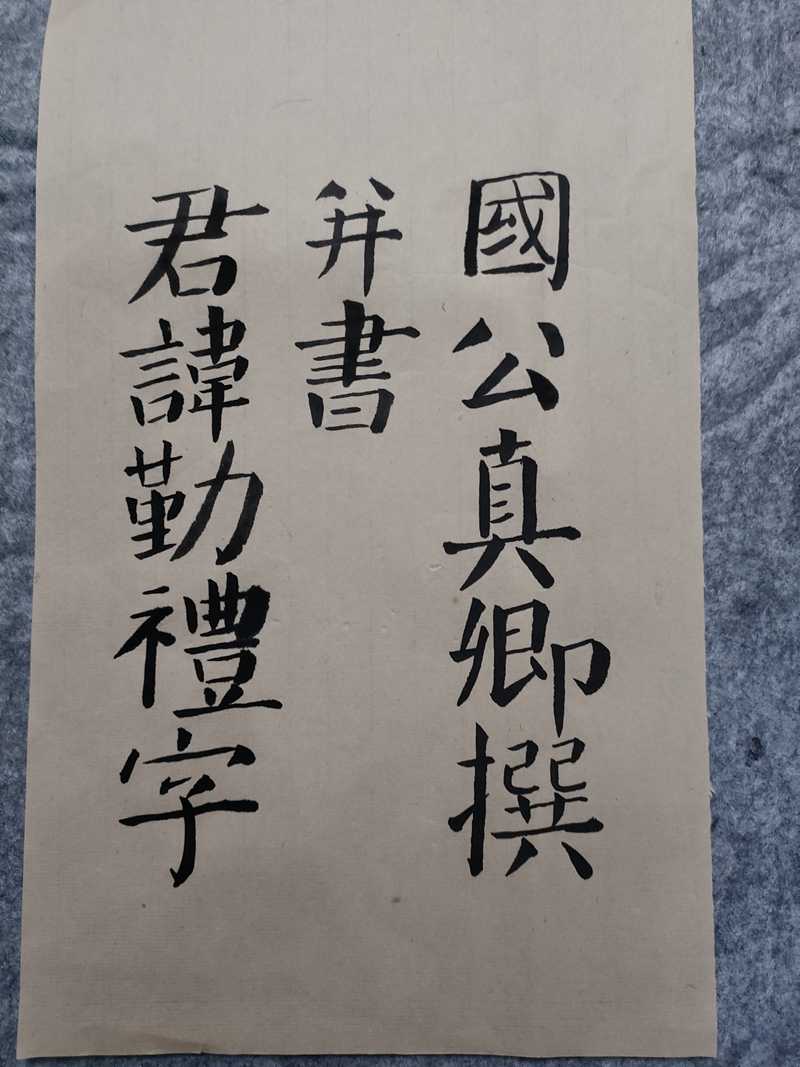 國公真卿撰
并書
君諱勤禮字